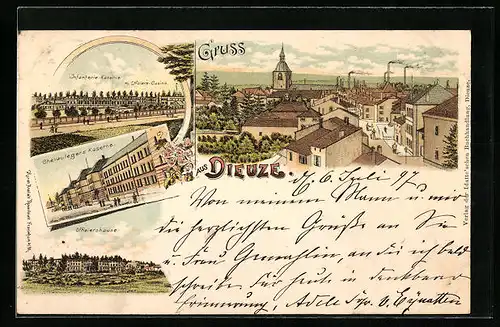 Gruss
aus DIEUZE.
Infanterie-Kaserne
m. Officiers-Casino.
Chevaulegers Kaserne.
Officiershäuser
Verlag der Idatte'schen Buchhandlung, Dieuze.
D. 6. Juli 97
Von meinem Mann u mir
die herzlichsten Grüße an Sie
u Frau Gemahlin, an die ich bald
schreibe für heute in dankbarer
Erinnerung, Adele